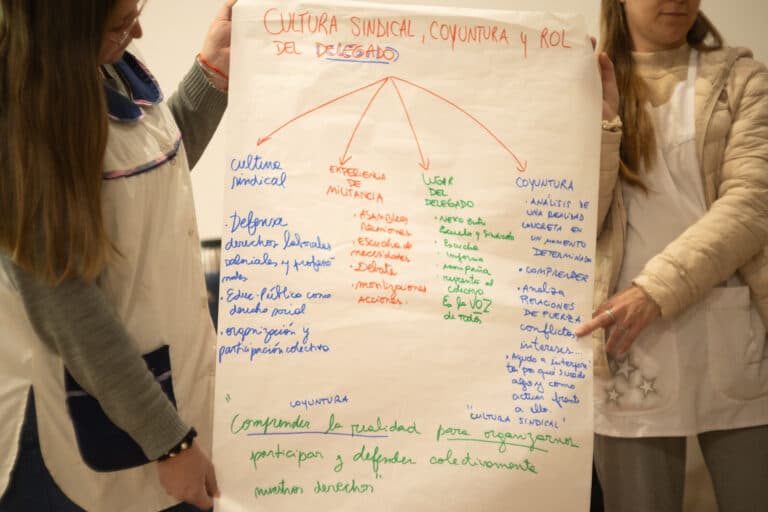 CULTURA SINDICAL, COYUNTURA Y ROL
DEL DELEGADO
Cultura
sindical
· Defensa
derechos laborales
salariales y profesio-
nales
· Educ. Pública como
derecho social
· organización y
participación colectiva
EXPERIENCIA
DE
MILITANCIA
· ASAMBLEAS
Reuniones
· Escucha de
necesidades
· Debate
· movilizaciones
acciones.
LUGAR
DEL
DELEGADO
· NEXO entre
Escuela y Sindicato
· Escucha
informa
acompaña
representa al
colectivo
Es la VOZ
de todos
COYUNTURA
· ANÁLISIS DE
UNA REALIDAD
CONCRETA EN
UN MOMENTO
DETERMINADO
· COMPRENDER
· Analiza
RELACIONES
DE FUERZA
conflictos
intereses...
· Ayuda a interpre-
tar por qué sucede
algo y como
actuar frente
a ello.
COYUNTURA
"CULTURA SINDICAL"
"Comprender la realidad para organizarnos
participar y defender colectivamente
nuestros derechos"